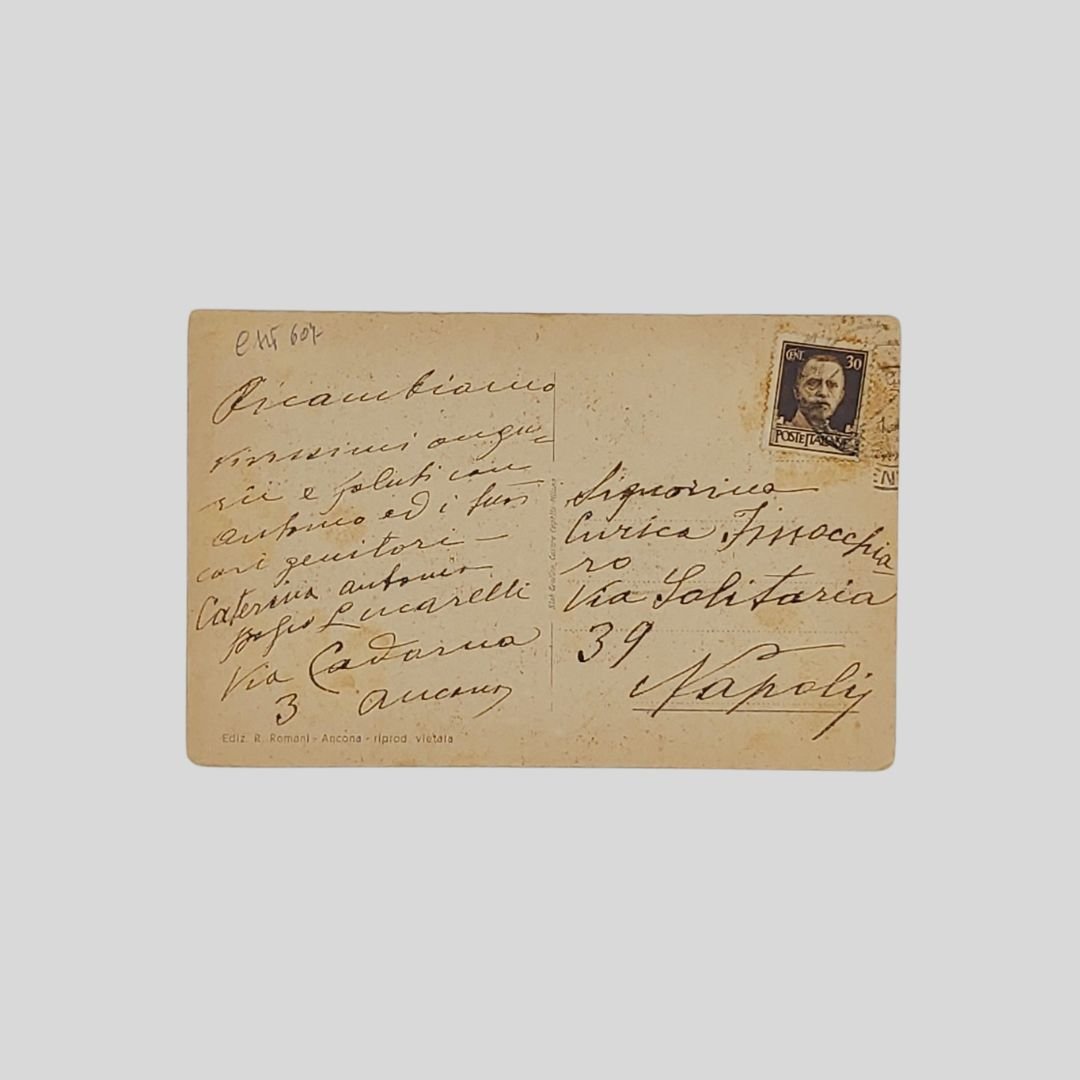 Ricambiamo
vivissimi augu=
rii e saluti con
Antonio ed i suoi
cari genitori —
Caterina Antonio
Lucarelli
Via Cadorna
3 Ancona
Ediz. R. Romani - Ancona - riprod. vietata
CENT. 30
POSTE ITALIANE
Signorina
Enrica Finocchia
ro
Via Solitaria
39
Napoli